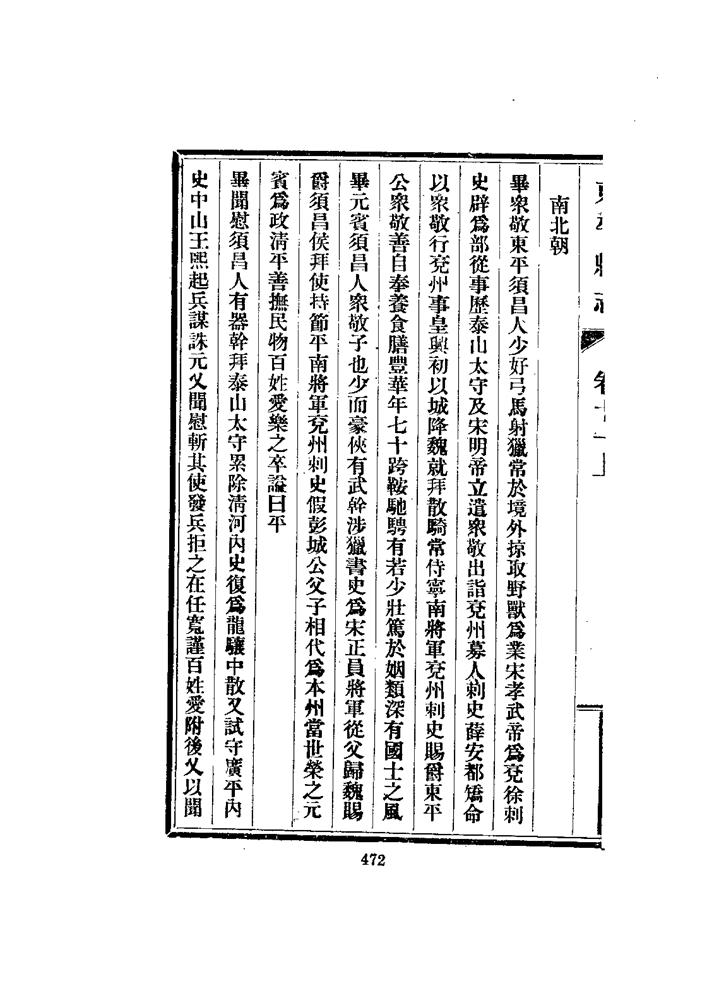 南北朝
畢衆敬東平須昌人少好弓馬射獵常於境外掠取野獸爲業宋孝武帝爲兗徐刺
史辟爲部從事歷泰山太守及宋明帝立遣衆敬出詣兗州募人刺史薛安都矯命
以衆敬行兗州事皇興初以城降魏就拜散騎常侍寧南將軍兗州刺史賜爵東平
公衆敬善自奉養食膳豐華年七十跨鞍馳騁有若少壯篤於姻類深有國士之風
畢元賓須昌人衆敬子也少而豪俠有武幹涉獵書史爲宋正員將軍從父歸魏賜
爵須昌侯拜使持節平南將軍兗州刺史假彭城公父子相代爲本州當世榮之元
賓爲政清平善撫民物百姓愛樂之卒謚曰平
畢聞慰須昌人有器幹拜泰山太守累除清河內史復爲龍驤中散又試守廣平內
史中山王熙起兵謀誅元乂聞慰斬其使發兵拒之在任寬謹百姓愛附後乂以聞
472